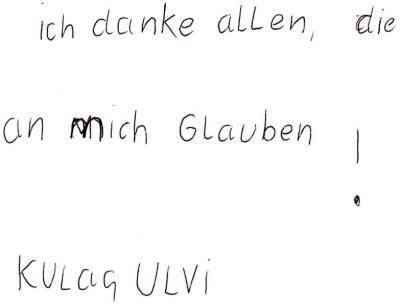 ich danke allen, die
an mich Glauben !
KULAG ULVi